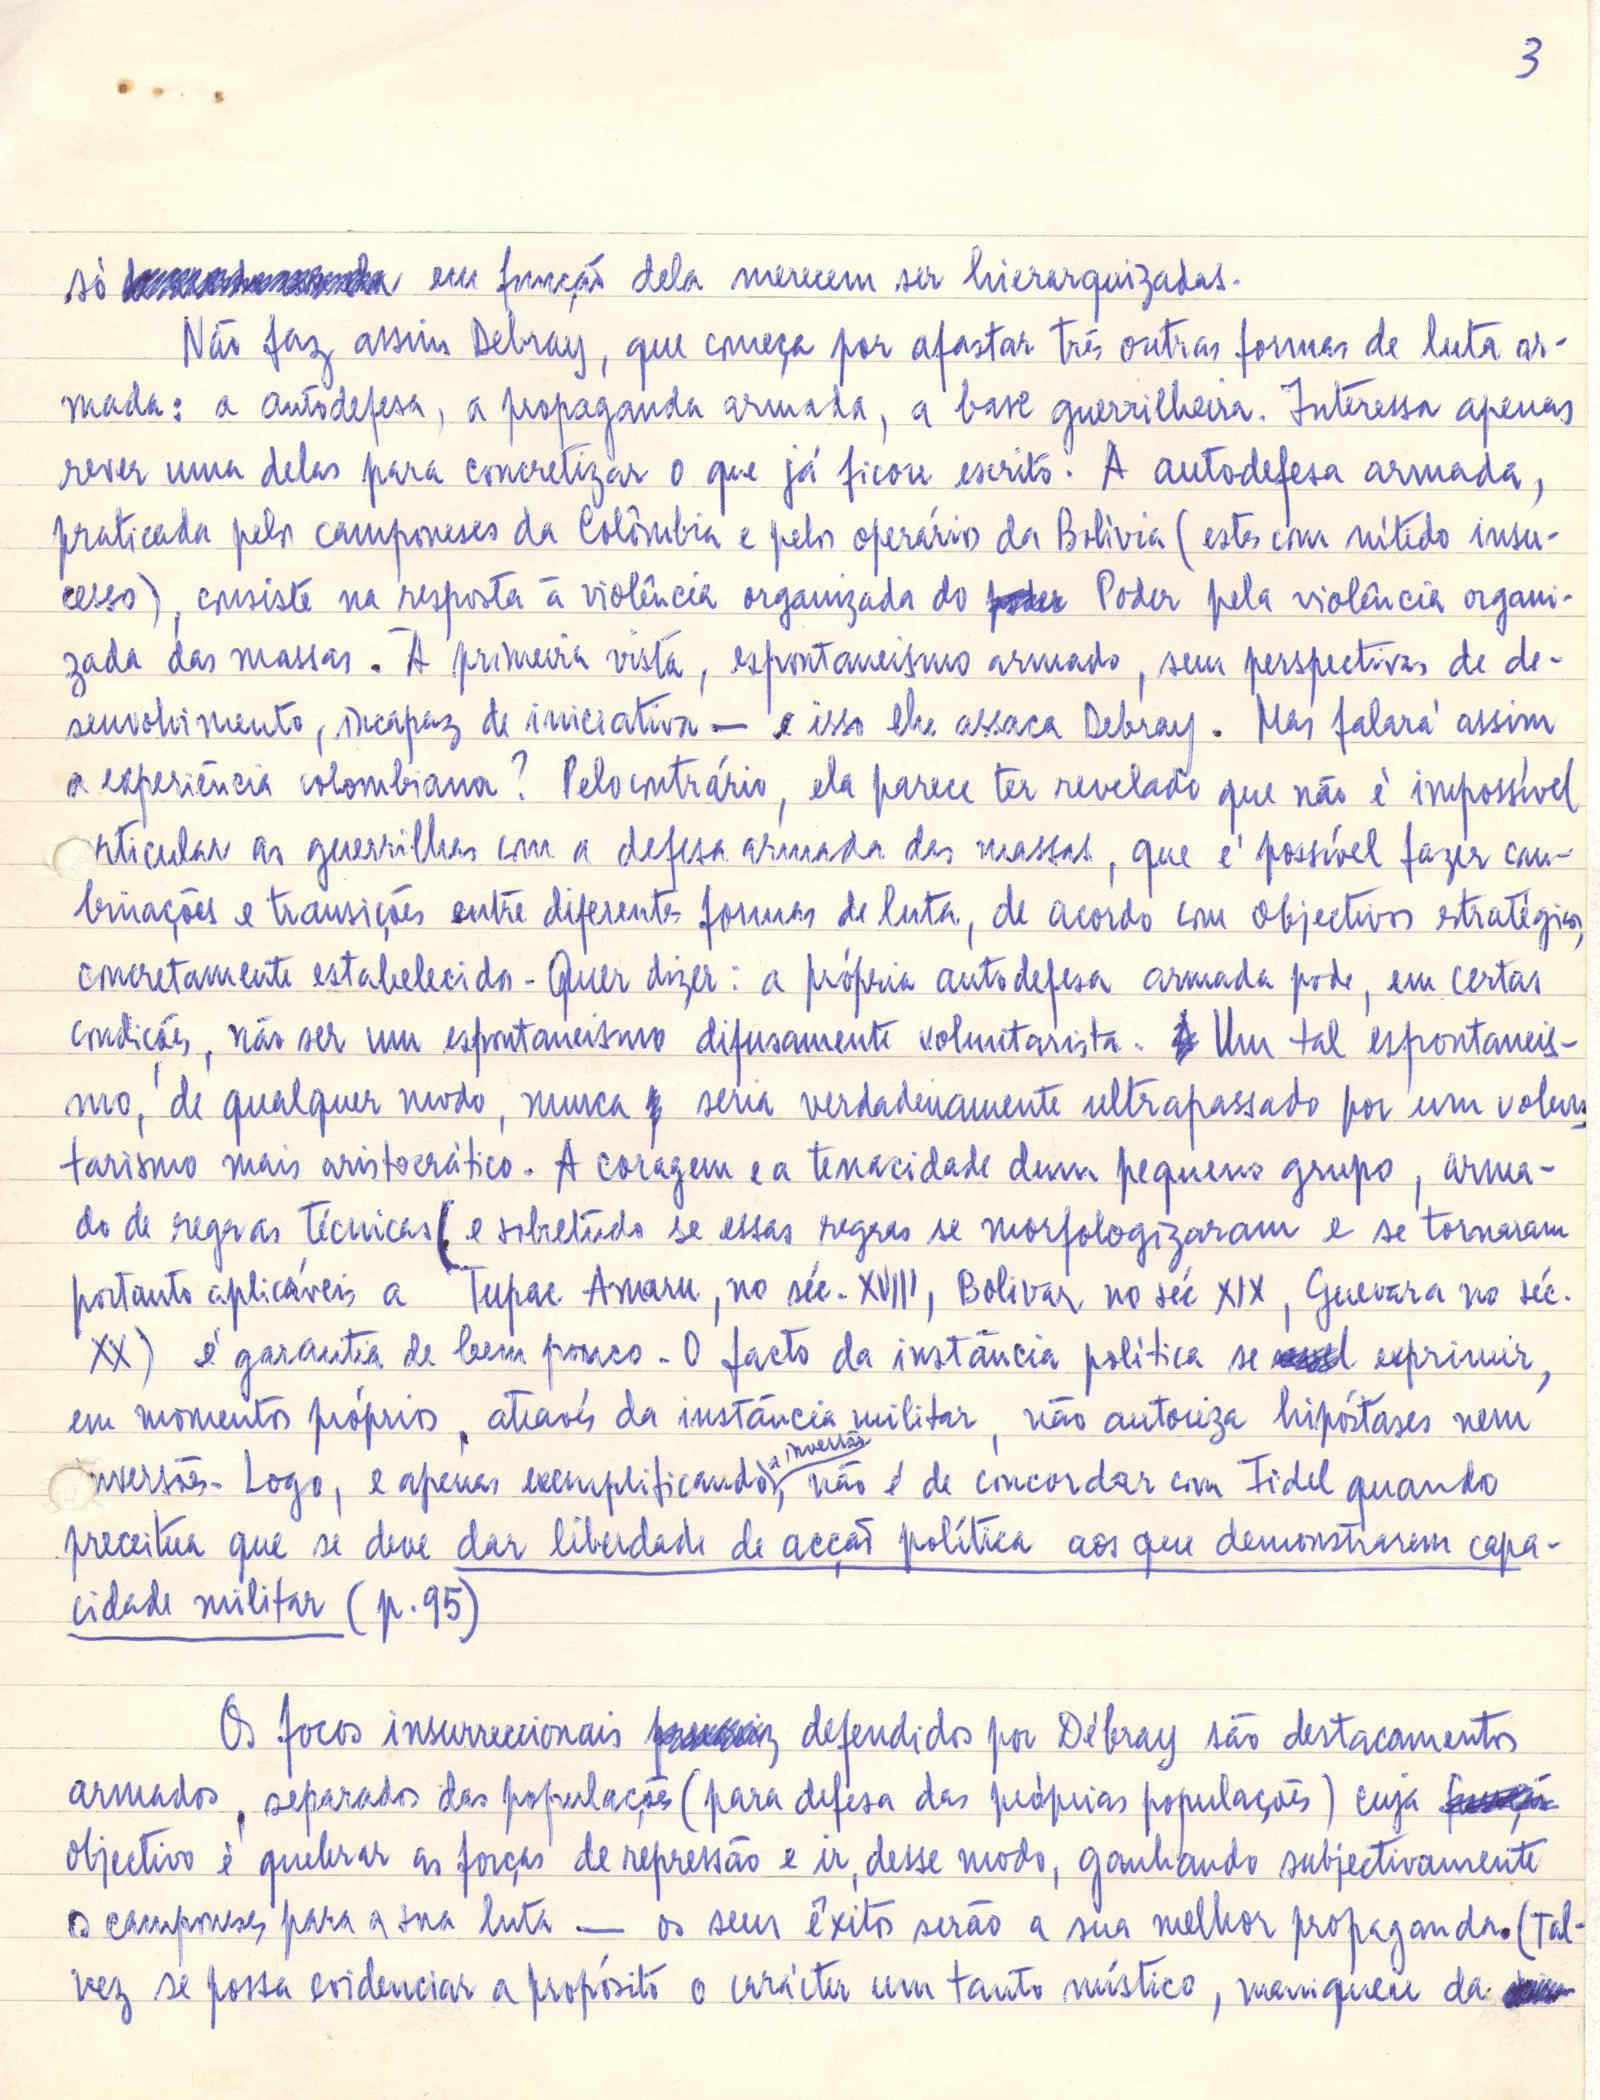 3
só em função dela merecem ser hierarquizadas.
Não faz assim Debray, que começa por afastar três outras formas de luta ar-
mada: a autodefesa, a propaganda armada, a base guerrilheira. Interessa apenas
rever uma delas para concretizar o que já ficou escrito. A autodefesa armada,
praticada pelos camponeses da Colômbia e pelos operários da Bolívia (estes com nítido insu-
cesso), consiste na resposta à violência organizada do poder Poder pela violência organi-
zada das massas. À primeira vista, espontaneismo armado, sem perspectivas de de-
senvolvimento, incapaz de iniciativa — e isso lhe assaca Debray. Mas falará assim
a experiência colombiana? Pelo contrário, ela parece ter revelado que não é impossível
rticular as guerrilhas com a defesa armada das massas, que é possível fazer com-
binações e transições entre diferentes formas de luta, de acordo com objectivos estratégicos,
concretamente estabelecidos - Quer dizer: a própria autodefesa armada pode, em certas
condições, não ser um espontaneismo difusamente voluntarista. Um tal espontaneis-
mo, de qualquer modo, nunca seria verdadeiramente ultrapassado por um volun
tarismo mais aristocrático. A coragem e a tenacidade dum pequeno grupo, arma-
do de regras técnicas (e sobretudo se essas regras se morfologizaram e se tornaram
portanto aplicáveis a Tupac Amaru, no séc. XVIII, Bolivar no séc XIX, Guevara no séc.
XX) é garantia de bem pouco - O facto da instância política se exprimir,
em momentos próprios, através da instância militar, não autoriza hipóstases nem
nversões - Logo, e apenas exemplificando a inversão, não é de concordar com Fidel quando
preceitua que se deve dar liberdade de acção política aos que demonstrarem capa-
cidade militar (p. 95)
Os focos insurreccionais defendidos por Débray são destacamentos
armados, separados das populações (para defesa das próprias populações) cuja
objectivo é quebrar as forças de repressão e ir, desse modo, ganhando subjectivamente
os camponeses para a sua luta — os seus êxitos serão a sua melhor propaganda. (Tal-
vez se possa evidenciar a propósito o carácter um tanto místico, maniqueu da